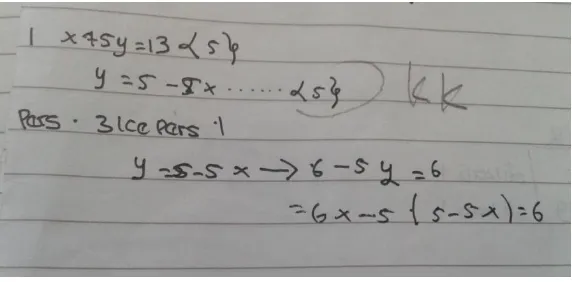 1 x+5y=13 {5}
y=5-5x ...... {5} KK
Pers. 3 ke pers 1
y=5-5x → 6-5y=6
=6x-5(5-5x)=6